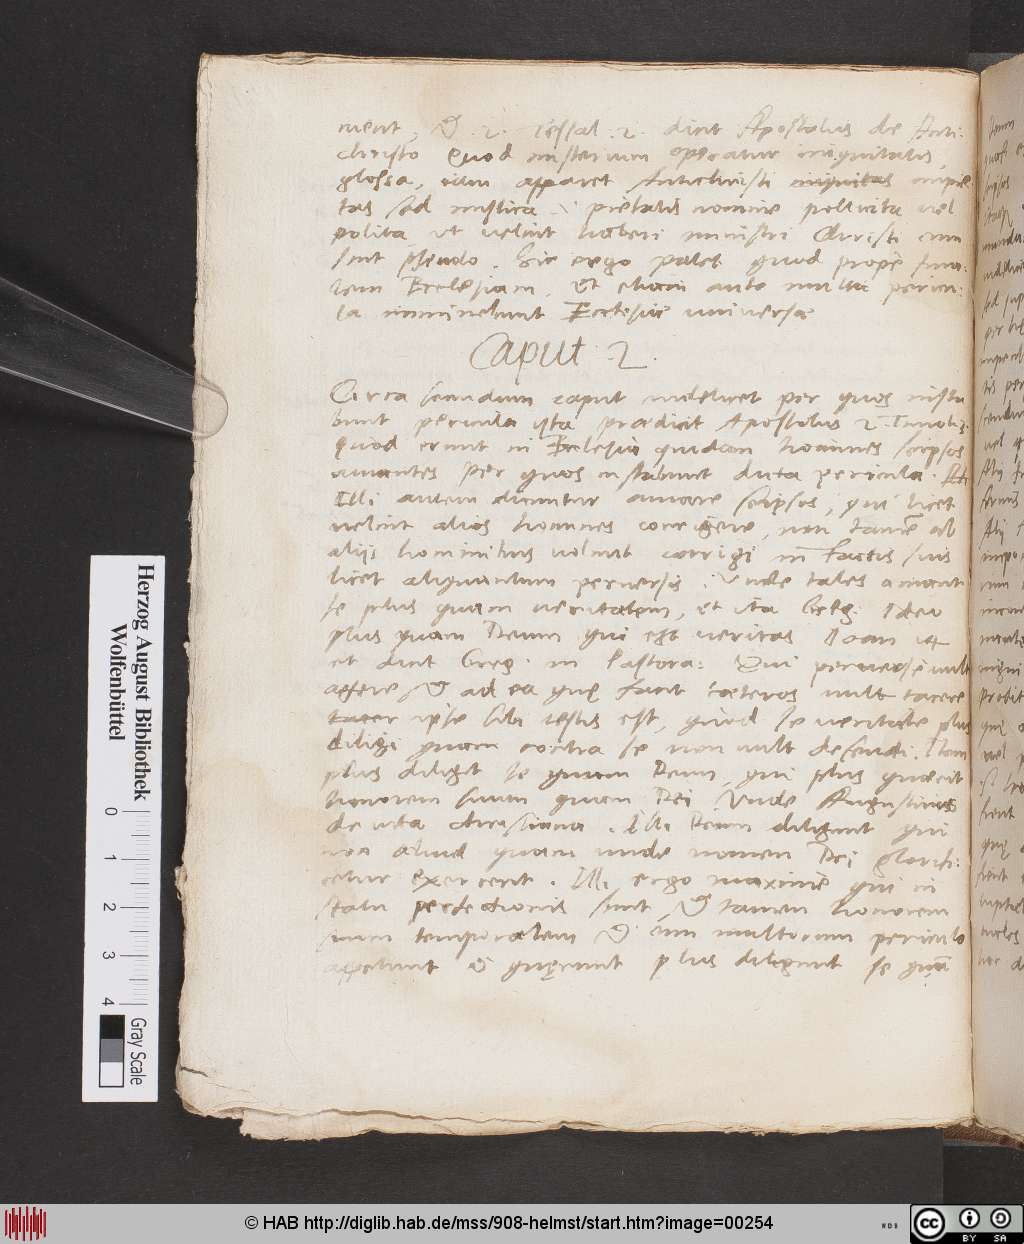 nient, & 2. Tessal. 2. dicit Apostolus de Anti:
christo Quod misterium operatur iniquitatis,
glossa, cum apparet Antichristi iniquitas impie
tas sed mistica pietatis nomine pollicita vel
polita ut velint haberi ministri Christi cum
sint pseudo. Sic ergo patet quod prope fina:
lem Ecclesiam. Et etiam ante multa pericu:
la imminebunt Ecclesiae universae
Caput 2.
Circa secundum caput videlicet per quos insta
bunt pericula ista praedicit Apostolus 2. Timoth. 3.
Quod erunt in Ecclesia quidam homines seipsos
amantes per quos instabunt dicta pericula.
Illi autem dicuntur amare seipsos, qui licet
velint alios homines corrigere, non tamē ab
alijs hominibus volunt corrigi in factis suis
licet aliquantum perversis. Unde tales amant
se plus quam veritatem, et ita Greg: Ideo
plus quam Deum qui est veritas Ioan 14
et dicit Greg. in Pastora: Qui perverse vult
agere & ad ea quę facit caeteros vult tacere
tacer ipse sibi testis est, quod se veritate plus
diligi quam contra se non vult defendi. Item
plus diligit se quam Deum, qui plus quaerit
honorem suum quam Dei Unde Augustinus
de vita christiana. Illi Deum diligunt qui
non aliud quam unde nomen Dei glorifi:
cetur exercent. Illi ergo maxime qui in
statu perfectionis sunt, & tamen honorem
suum temporalem & cum multorum periculo
appetunt & quęrunt plus diligunt se quā
Herzog August Bibliothek
Wolfenbüttel
0 1 2 3 4
Gray Scale
© HAB http://diglib.hab.de/mss/908-helmst/start.htm?image=00254
WDB
cc BY SA